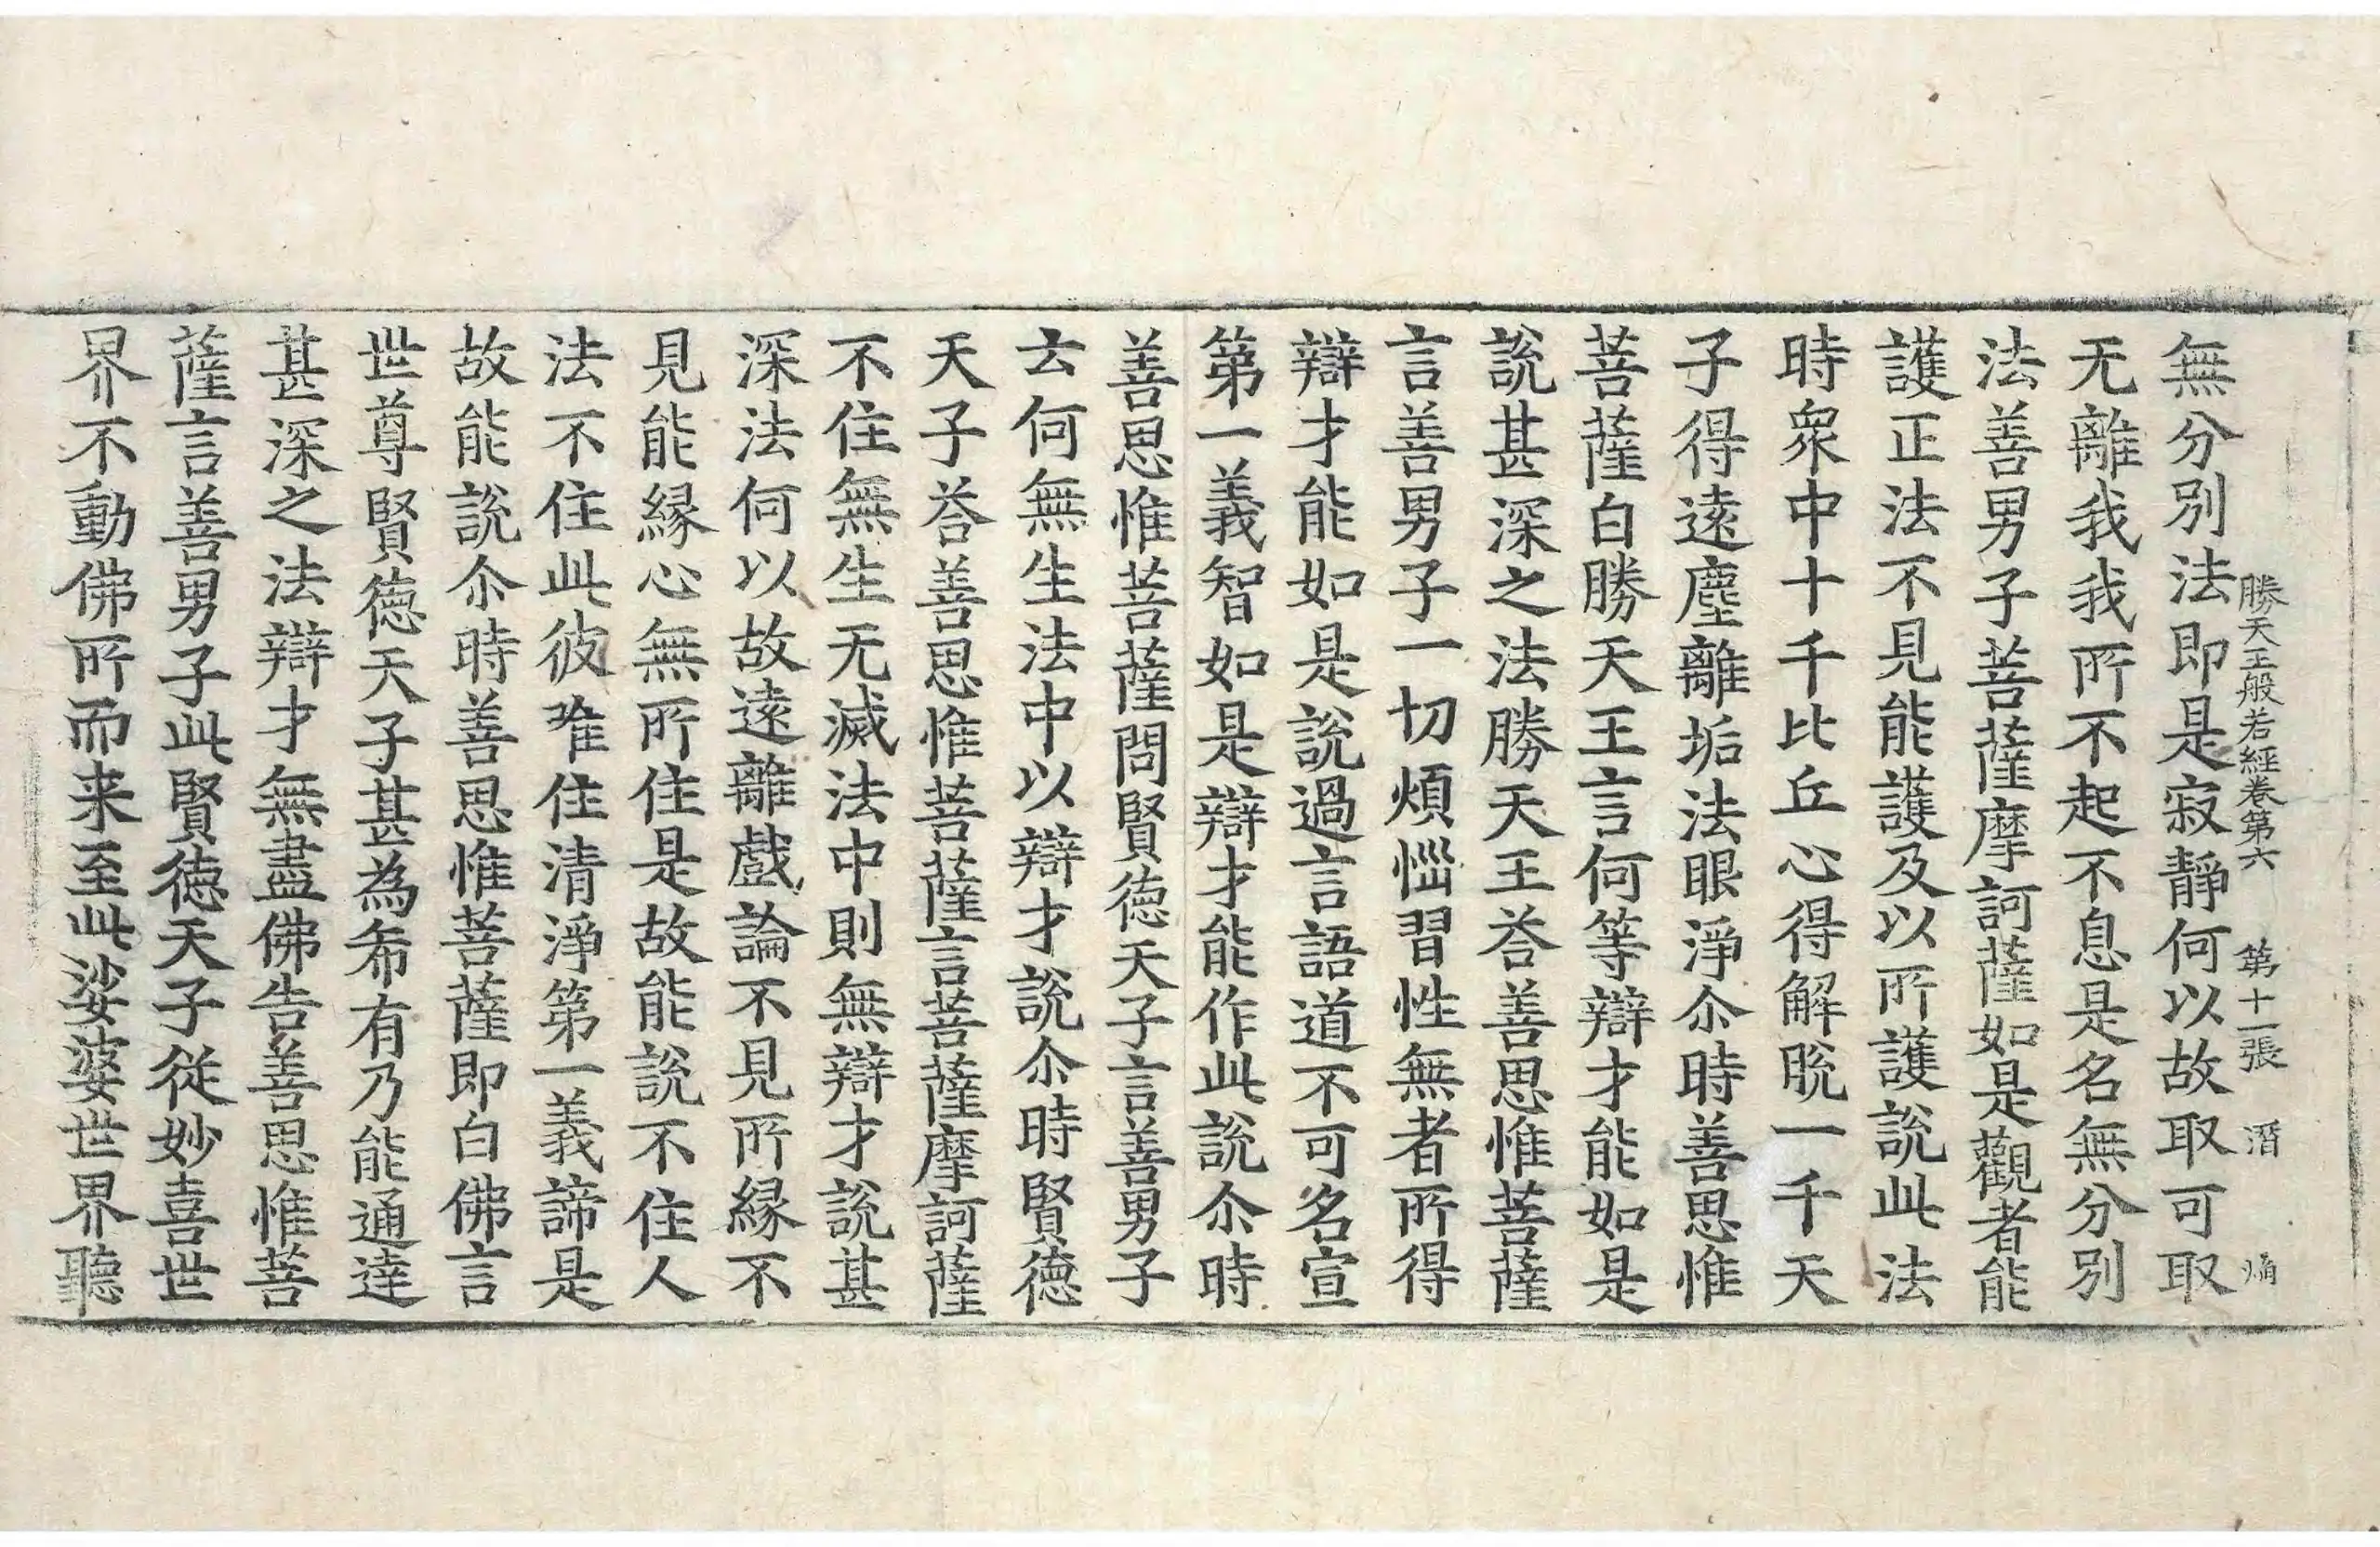 勝天王般若經卷第六 第十一張 潛
無分別法即是寂靜何以故取可取
无離我我所不起不息是名無分別
法善男子菩薩摩訶薩如是觀者能
護正法不見能護及以所護說此法
時衆中十千比丘心得解脫一千天
子得遠塵離垢法眼淨尒時善思惟
菩薩白勝天王言何等辯才能如是
說甚深之法勝天王荅善思惟菩薩
言善男子一切煩惱習性無者所得
辯才能如是說過言語道不可名宣
第一義智如是辯才能作此說尒時
善思惟菩薩問賢德天子言善男子
云何無生法中以辯才說尒時賢德
天子荅善思惟菩薩言菩薩摩訶薩
不住無生无滅法中則無辯才說甚
深法何以故遠離戲論不見所緣不
見能緣心無所住是故能說不住人
法不住此彼唯住清淨第一義諦是
故能說尒時善思惟菩薩即白佛言
世尊賢德天子甚為希有乃能通達
甚深之法辯才無盡佛告善思惟菩
薩言善男子此賢德天子從妙喜世
界不動佛所而来至此娑婆世界聽